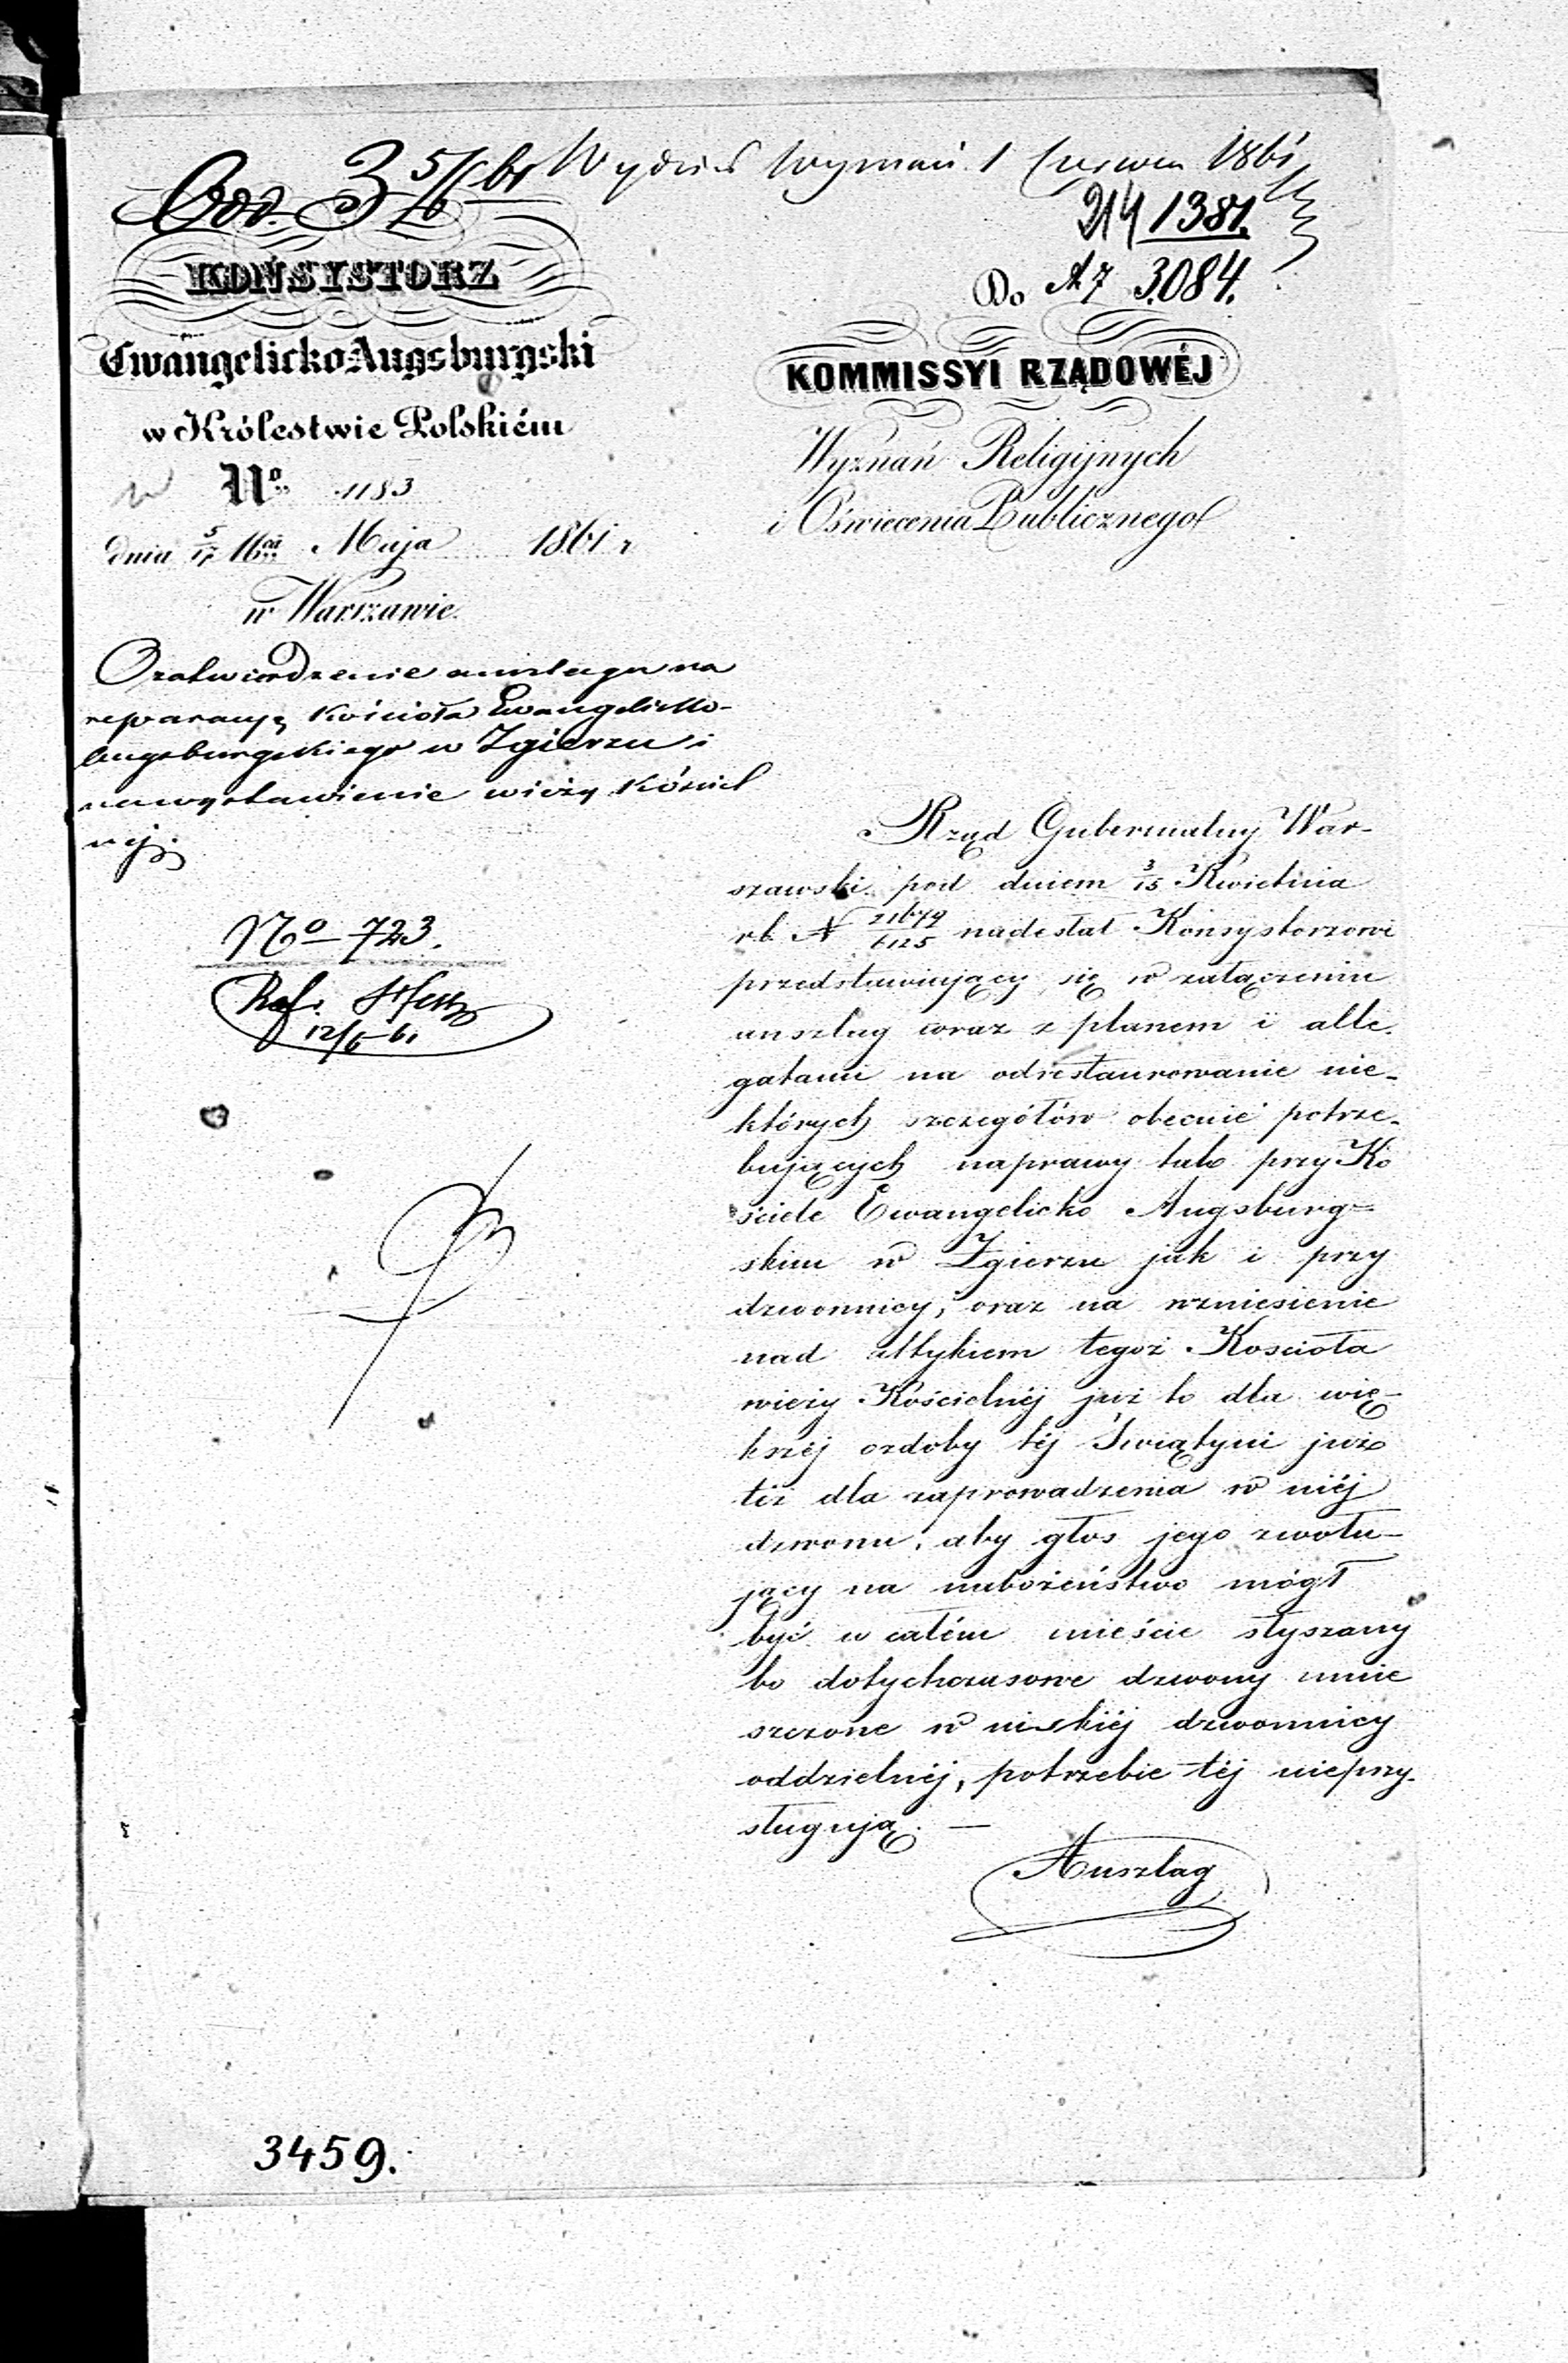 Odd. 3 5/6 61 Wydział Wyznań 1 Czerwca 1861
214 1381.
KONSYSTORZ
Ewangelicko-Augsburgski
w Królestwie Polskiém
No. 1183
dnia 5/17 Maja 1861 r
w Warszawie.
O zatwierdzenie anszlagu na
reparacyę Kościoła Ewangelicko-
Augsburgskiego w Zgierzu i
na wystawienie wieży Kościel
nej.
No 723.
Ref.
12/6 61
3459.
Do N 3084.
KOMMISSYI RZĄDOWÉJ
Wyznań Religijnych
i Oświecenia Publicznego
Rząd Gubernialny War-
szawski pod dniem 3/15 Kwietnia
r.b. N 21679/6125 nadesłał Konsystorzowi
przedstawiający się w załączeniu
anszlag wraz z planem i alle-
gatami na odrestaurowanie nie-
których szczegółów obecnie potrze-
bujących naprawy tak przy Ko
ściele Ewangelicko Augsburg=
skim w Zgierzu jak i przy
dzwonnicy, oraz na wzniesienie
nad attykiem tegoż Kościoła
wieży Kościelnéj już to dla wię-
kszéj ozdoby téj Świątyni już
też dla zaprowadzenia w niéj
dzwonu, aby głos jego zwołu-
jący na nabożeństwo mógł
być w całém mieście słyszany
bo dotychczasowe dzwony umie
szczone w niskiéj dzwonnicy
oddzielnéj, potrzebie téj nieprzy-
sługują. —
Anszlag